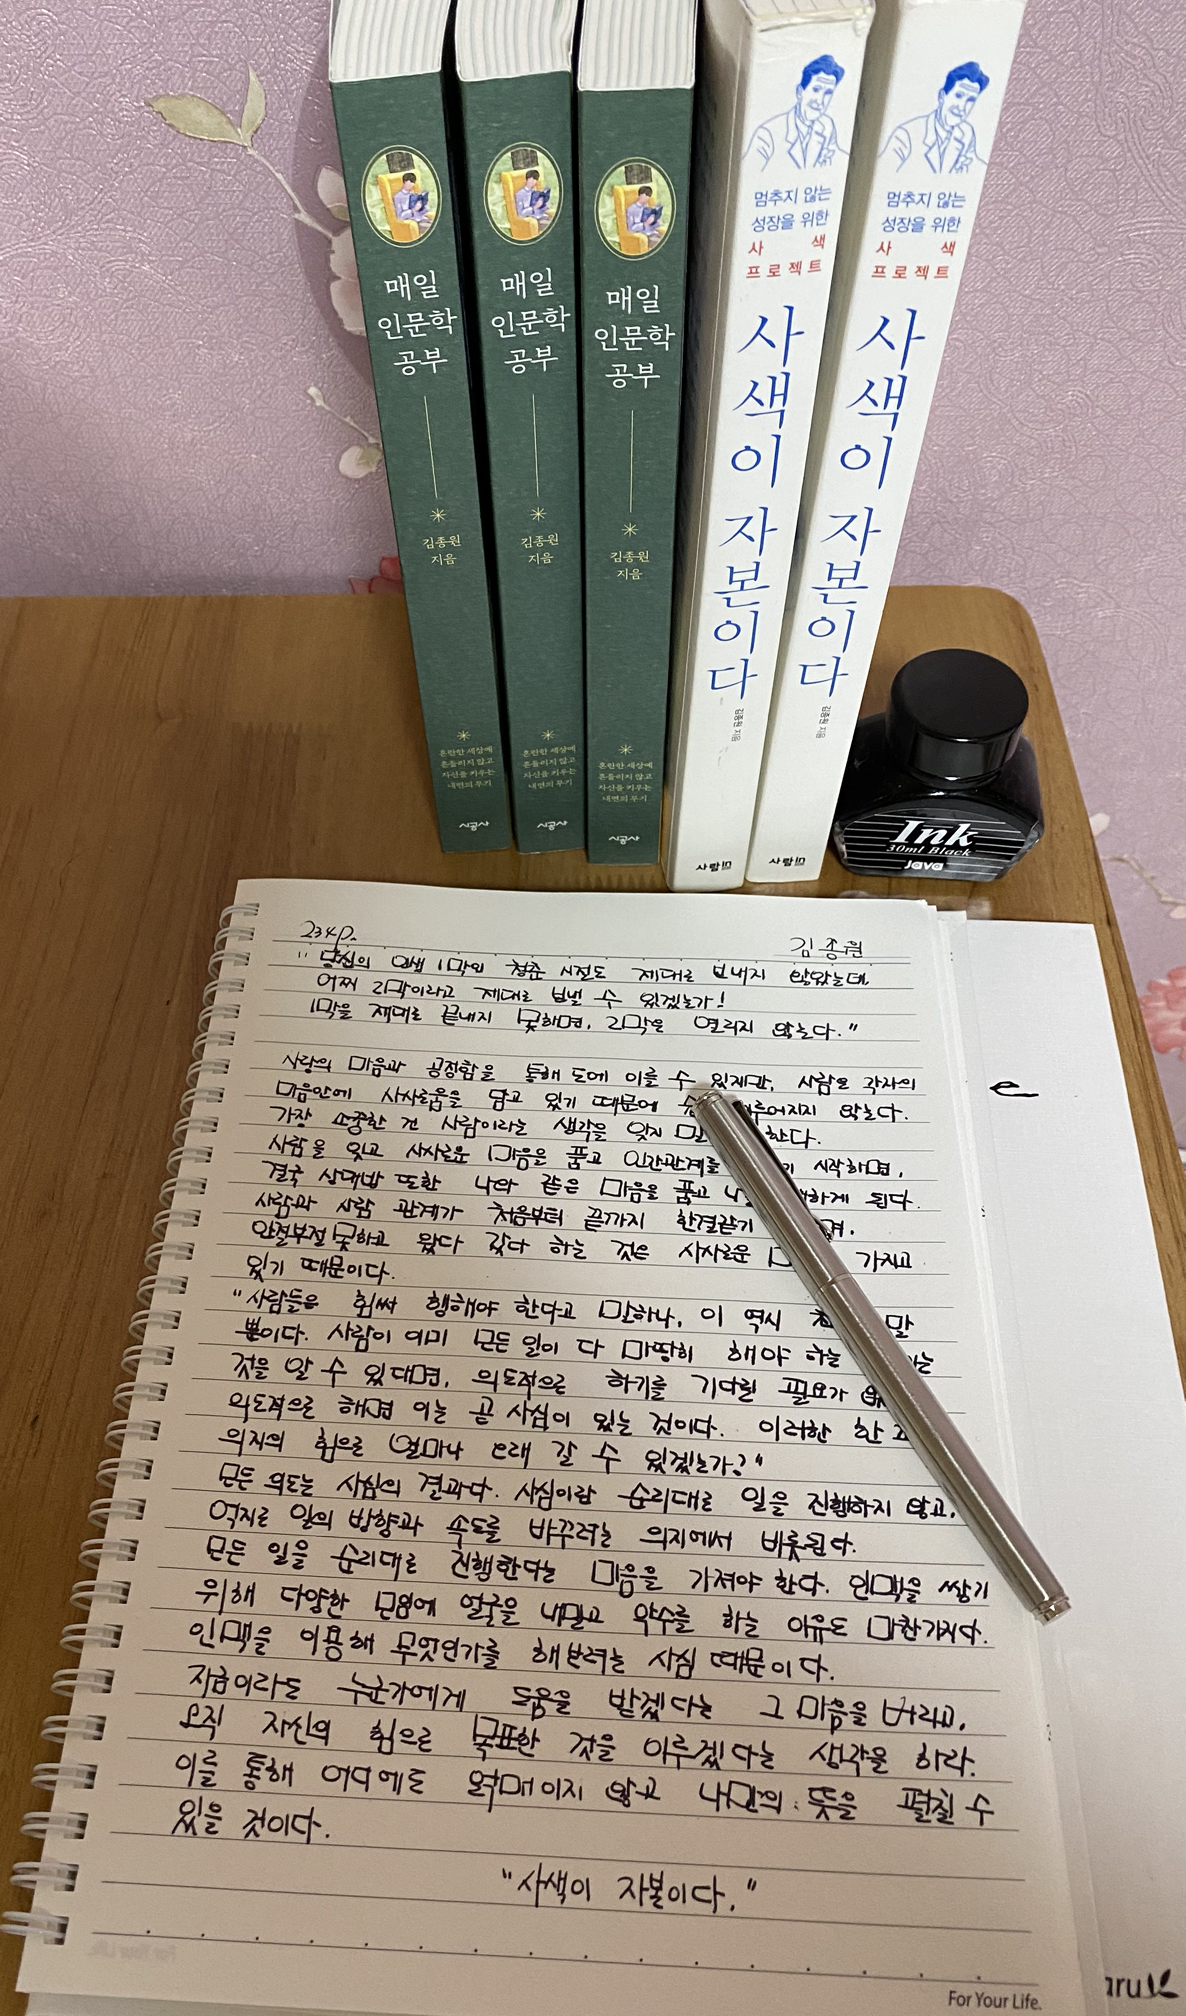 매일
인문학
공부
김종원
지음
혼란한 세상에
흔들리지 않고
자신을 키우는
내면의 무기
시공사
매일
인문학
공부
김종원
지음
혼란한 세상에
흔들리지 않고
자신을 키우는
내면의 무기
시공사
매일
인문학
공부
김종원
지음
혼란한 세상에
흔들리지 않고
자신을 키우는
내면의 무기
시공사
멈추지 않는
성장을 위한
사색
프로젝트
사색이 자본이다
김종원 지음
사람in
멈추지 않는
성장을 위한
사색
프로젝트
사색이 자본이다
김종원 지음
사람in
Ink
30ml Black
Java
234p. 김종원
"당신의 인생 1막인 청춘 시절도 제대로 보내지 않았는데
어찌 2막이라고 제대로 보낼 수 있겠는가!
1막을 제대로 끝내지 못하면, 2막은 열리지 않는다."
사랑의 마음과 공정함을 통해 도에 이를 수 있지만, 사람은 각자의
마음안에 사사로움을 담고 있기 때문에 루어지지 않는다.
가장 소중한 건 사람이라는 생각을 잊지 말 한다.
사람을 잊고 사사로운 마음을 품고 인간관계를 기 시작하면,
결국 상대방 또한 나와 같은 마음을 품고 하게 된다.
사람과 사람 관계가 처음부터 끝까지 한결같기
안절부절못하고 왔다 갔다 하는 것은 사사로운 가지고
있기 때문이다.
"사람들은 힘써 행해야 한다고 말하나, 이 역시 말
뿐이다. 사람이 이미 모든 일이 다 마땅히 해야 하는
것을 알 수 있다면, 의도적으로 하기를 기다릴 필요가
의도적으로 하면 이는 곧 사심이 있는 것이다. 이러한 한
의지의 힘으로 얼마나 오래 갈 수 있겠는가?"
모든 의도는 사심의 결과다. 사심이란 순리대로 일을 진행하지 않고,
억지로 일의 방향과 속도를 바꾸려는 의지에서 비롯된다.
모든 일을 순리대로 진행한다는 마음을 가져야 한다. 인맥을 쌓기
위해 다양한 모임에 얼굴을 내밀고 악수를 하는 이유도 마찬가지다.
인맥을 이용해 무엇인가를 해보려는 사심 때문이다.
지금이라도 누군가에게 도움을 받겠다는 그 마음을 버리고,
오직 자신의 힘으로 목표한 것을 이루겠다는 생각을 하라.
이를 통해 어디에도 얽매이지 않고 나만의 뜻을 펼칠 수
있을 것이다.
"사색이 자본이다."
For Your Life.